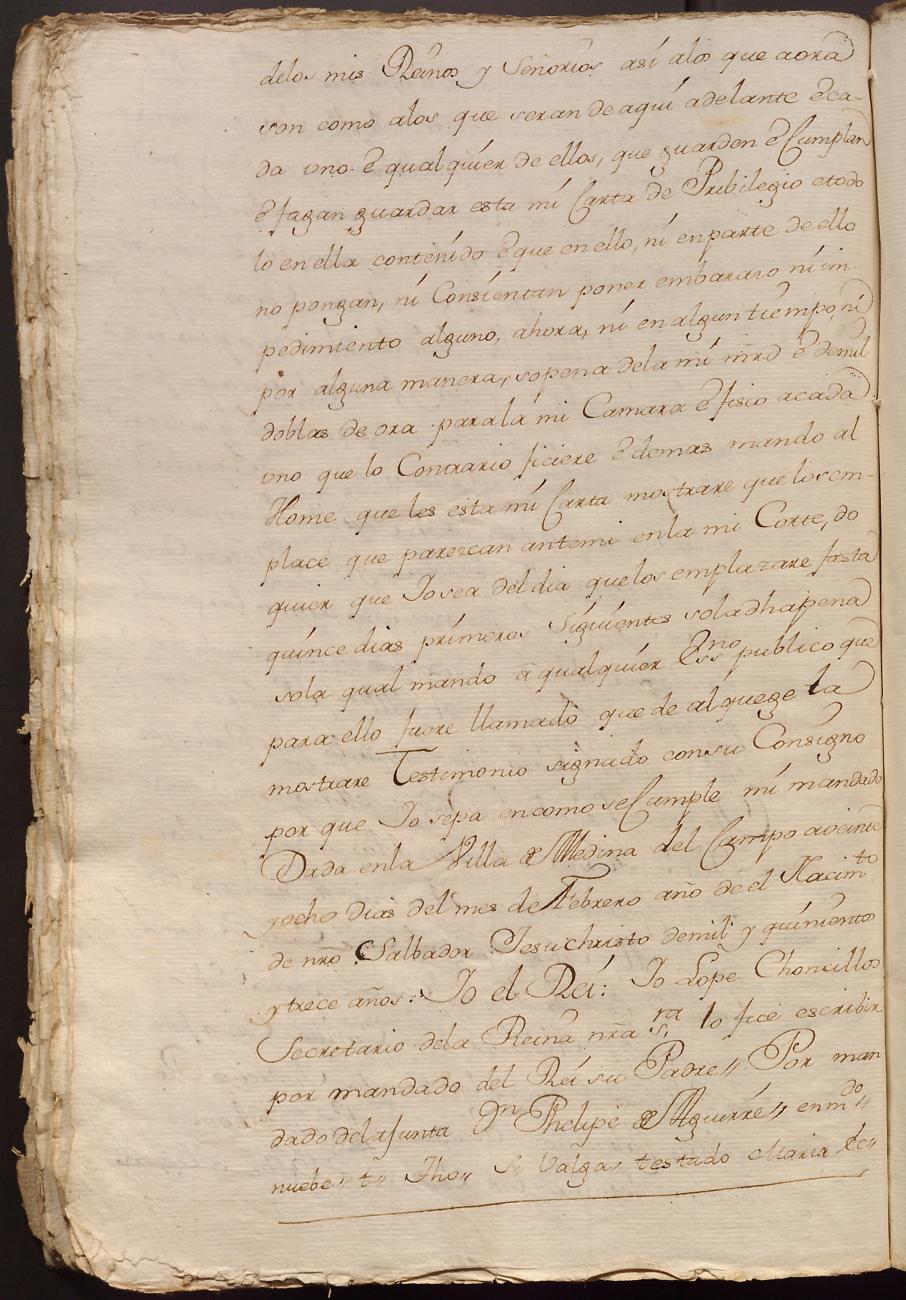 delos mis Reinos y Señorios asi alos que aora
son como alos que seran de aqui adelante è ca-
da uno è qualquier de ellos, que guarden è Cumplan
è fagan guardar esta mi Carta de Pribilegio etodo
lo en ella contenido è que en ello, ni en parte de ello
no pongan, ni Consientan poner embarazo ni im-
pedimiento alguno, ahora, ni en algun tiempo, ni
por alguna manera, sopena dela mi mrd è demil
doblas de ora parala mi Camara è fisco acada
uno que lo Contrario ficiere è demas mando al
Home que les esta mi Carta mostrare que los em-
place que parezcan antemi enla mi Corte, do
quier que Io sea del dia quelos emplazare fasta
quince dias primeros siguientes soladha pena
sola qual mando a qualquier Essno publico que
para ello fuere llamado que de al quege la
mostrare Testimonio signado con su Consigno
por que Io sepa encomo se Cumple mi mandado
Dada enla Villa de Medina del Campo aveinte
yocho dias del mes de Febrero año de el Nacimto
de nrô Salbador Jesuchristo demil y quiniento
y trece años: Io el Rei: Io Lope Choncillos
Secretario dela Reina nrâ sra lo fice escribir
por mandado del Rei su Padre,, Por man
dado delaJunta Phelipe de Aguirre,, enmdo,,
nuebe,, t,, Jho,, Valga,, testado Maria